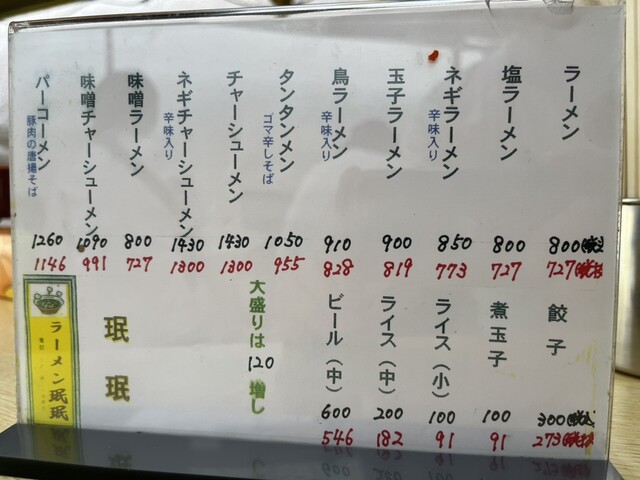 ラーメン
800(税込)
727(税抜)
塩ラーメン
800
727
ネギラーメン
辛味入り
850
773
玉子ラーメン
900
819
鳥ラーメン
辛味入り
910
828
タンタンメン
ゴマ辛しそば
1050
955
チャーシューメン
1430
1300
ネギチャーシューメン
辛味入り
1430
1300
味噌ラーメン
800
727
味噌チャーシューメン
1090
991
パーコーメン
豚肉の唐揚そば
1260
1146
餃子
300(税込)
273(税抜)
煮玉子
100
91
ライス(小)
100
91
ライス(中)
200
182
ビール(中)
600
546
大盛りは
120
増し
珉珉
ラーメン珉珉